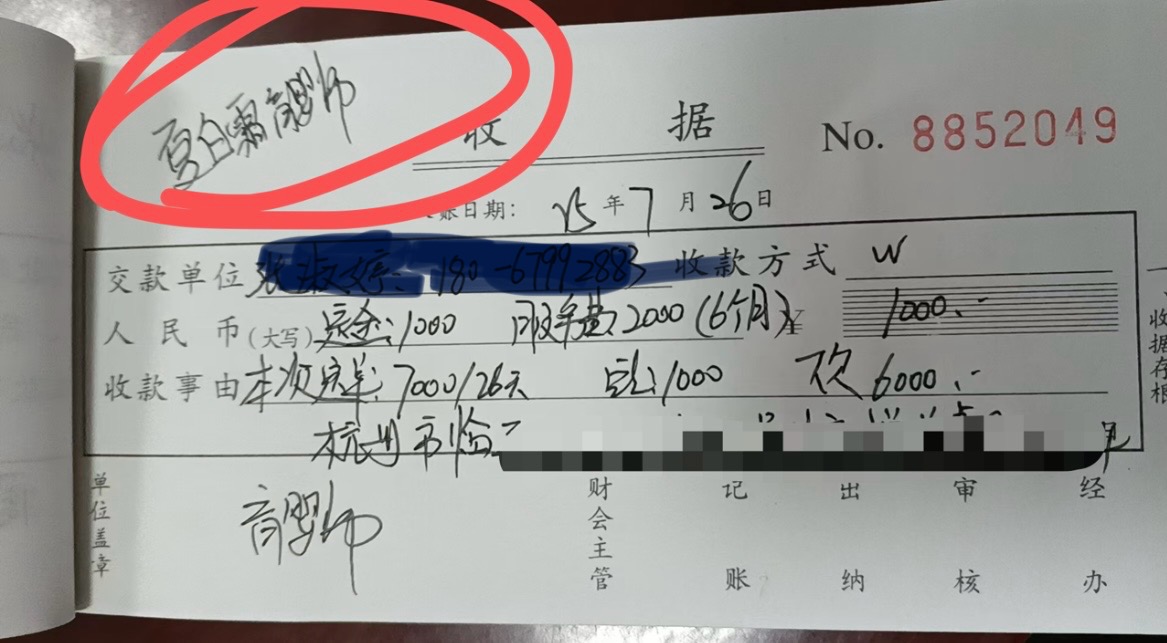 夏白霜育婴师
收 据 No. 8852049
账日期: 25年7月26日
交款单位 收款方式 W
人民币(大写) 定金:1000 服务费:2000(6个月) ¥ 1000.-
收款事由 本次定单:7000/26天 定:1000 欠6000.-
杭州市临
育婴师
单位盖章 财会主管 记账 出纳 审核 经办
收据存根